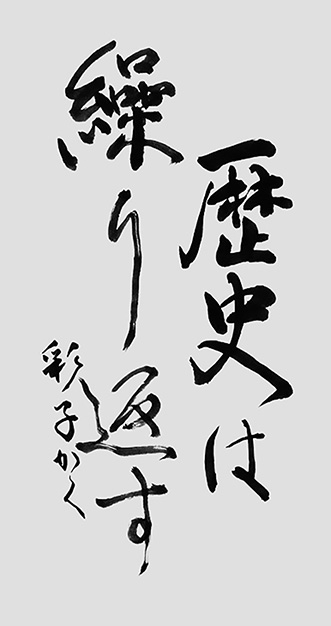 歴史は
繰り返す
彩子かく